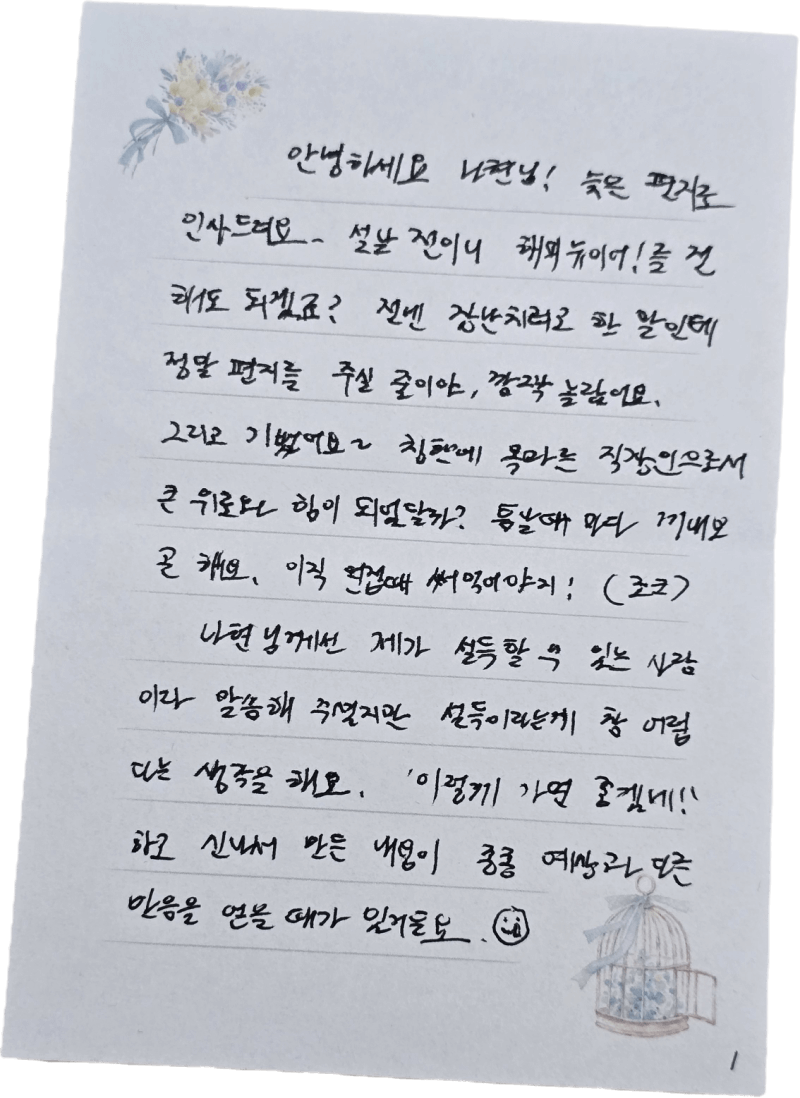 안녕하세요 나현님! 늦은 편지로
인사드려요~ 설날 전이니 해피뉴이어!를 전
해도 되겠죠? 전엔 장난치려고 한 말인데
정말 편지를 주실 줄이야, 깜짝 놀랐어요.
그리고 기뻤어요~ 칭찬에 목마른 직장인으로서
큰 위로와 힘이 되었달까? 틈날때 마다 꺼내보
곤 해요. 이직 면접때 써먹어야지! (조크)
나현님께선 제가 설득할 수 있는 사람
이라 말씀해 주셨지만 설득이라는게 참 어렵
다는 생각을 해요. '이렇게 가면 좋겠네!!'
하고 신나서 만든 내용이 종종 예상과 다른
반응을 얻을 때가 있거든요.
1